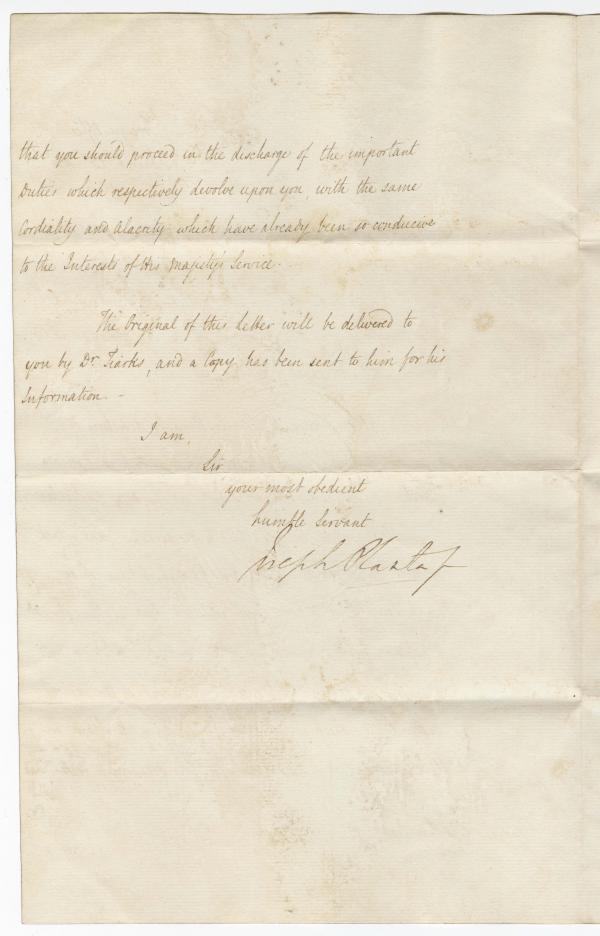 that you should proceed in the discharge of the important
Duties which respectively devolve upon you, with the same
Cordiality and Alacrity which have already been so conducive
to the Interests of His Majesty's Service.
The Original of this Letter will be delivered to
you by Dr. Tiarks, and a Copy has been sent to him for his
Information. -
I am,
Sir
your most obedient
humble Servant
Joseph Planta Jr